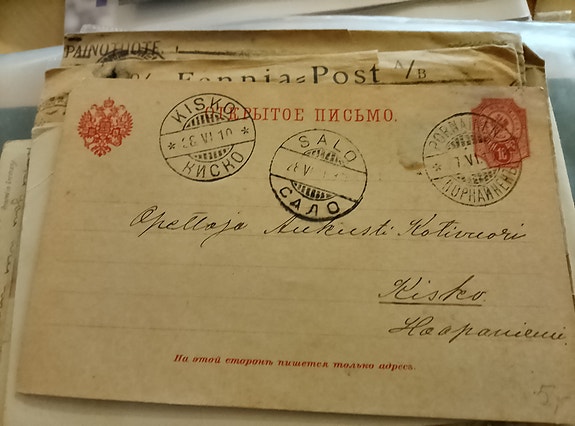 PAINOTUOTE
Fennia-Post A/B
ОТКРЫТОЕ ПИСЬМО.
KISKO
28 VI 10
КИСКО
SALO
САЛО
PORNAINEN
ПОРНАЙНЕНЪ
Opettaja Aukusti Kotivuori
Kisko
Haapaniemi.
На этой сторонѣ пишется только адресъ.